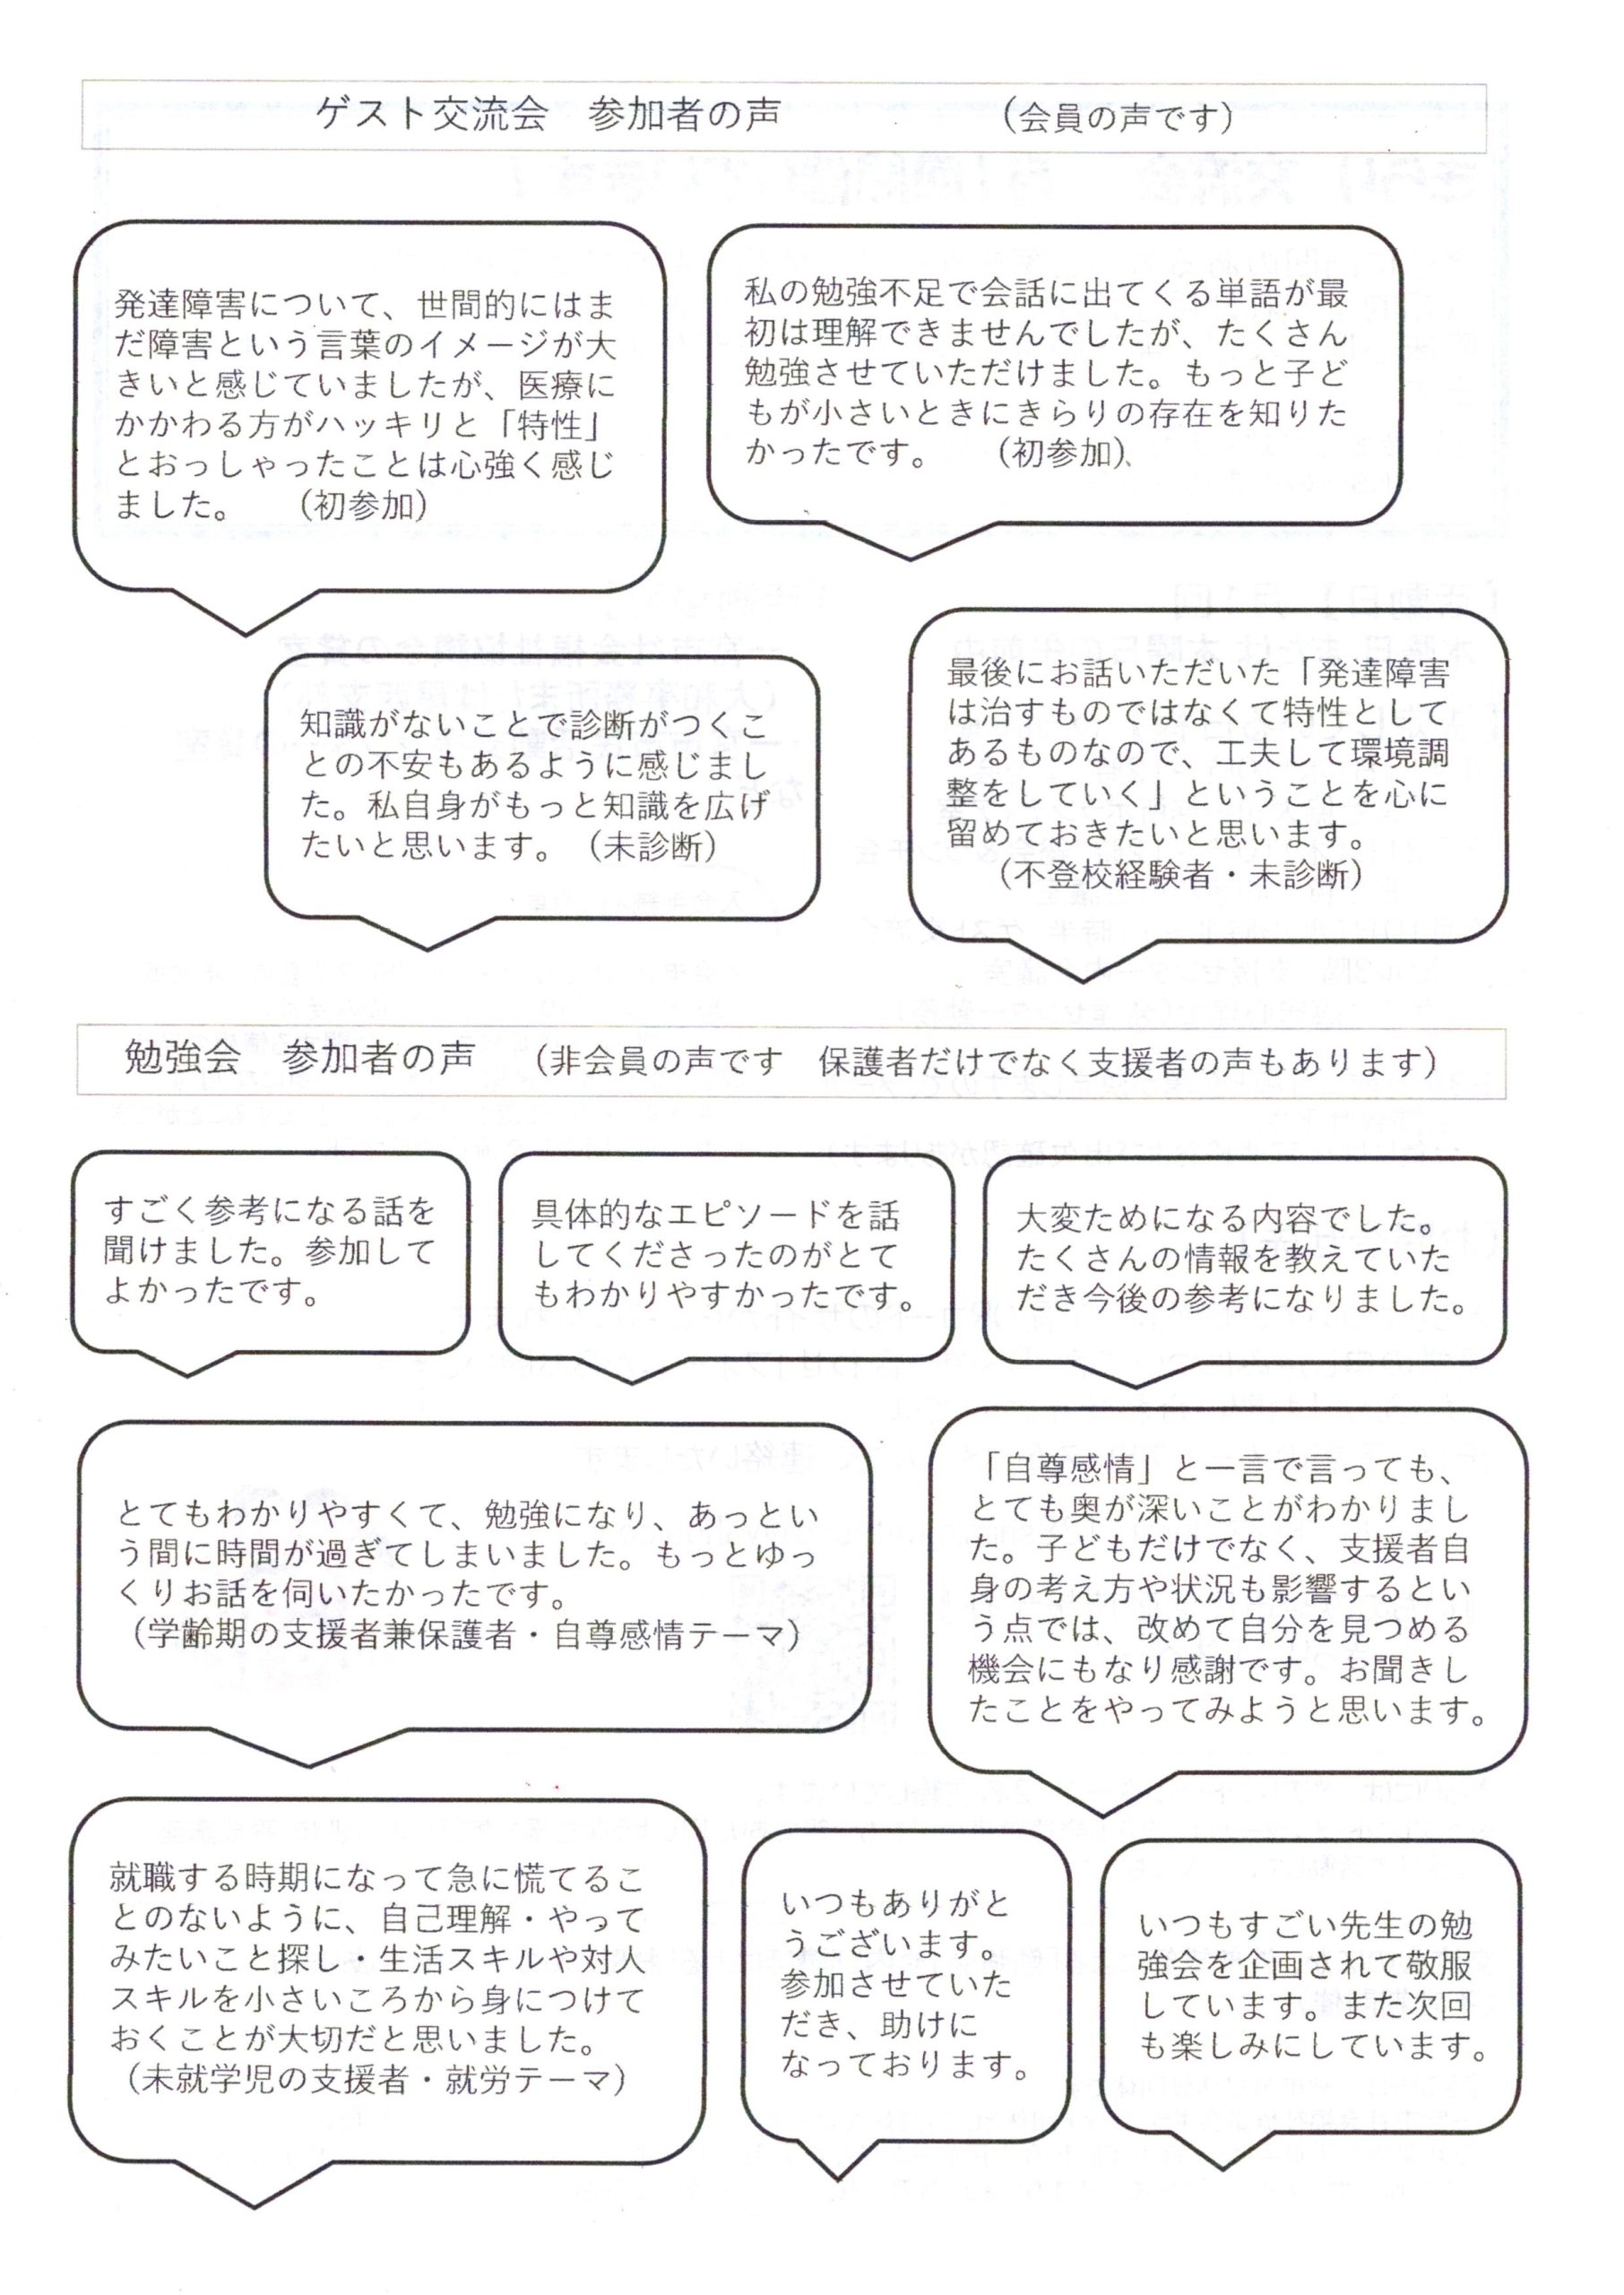 ゲスト交流会　参加者の声　（会員の声です）
発達障害について、世間的にはま
だ障害という言葉のイメージが大
きいと感じていましたが、医療に
かかわる方がハッキリと「特性」
とおっしゃったことは心強く感じ
ました。　（初参加）
私の勉強不足で会話に出てくる単語が最
初は理解できませんでしたが、たくさん
勉強させていただけました。もっと子ど
もが小さいときにきらりの存在を知りた
かったです。　（初参加）、
知識がないことで診断がつくこ
との不安もあるように感じまし
た。私自身がもっと知識を広げ
たいと思います。（未診断）
最後にお話いただいた「発達障害
は治すものではなくて特性として
あるものなので、工夫して環境調
整をしていく」ということを心に
留めておきたいと思います。
（不登校経験者・未診断）
勉強会　参加者の声　（非会員の声です　保護者だけでなく支援者の声もあります）
すごく参考になる話を
聞けました。参加して
よかったです。
具体的なエピソードを話
してくださったのがとて
もわかりやすかったです。
大変ためになる内容でした。
たくさんの情報を教えていた
だき今後の参考になりました。
とてもわかりやすくて、勉強になり、あっとい
う間に時間が過ぎてしまいました。もっとゆっ
くりお話を伺いたかったです。
（学齢期の支援者兼保護者・自尊感情テーマ）
「自尊感情」と一言で言っても、
とても奥が深いことがわかりまし
た。子どもだけでなく、支援者自
身の考え方や状況も影響するとい
う点では、改めて自分を見つめる
機会にもなり感謝です。お聞きし
たことをやってみようと思います。
就職する時期になって急に慌てるこ
とのないように、自己理解・やって
みたいこと探し・生活スキルや対人
スキルを小さいころから身につけて
おくことが大切だと思いました。
（未就学児の支援者・就労テーマ）
いつもありがと
うございます。
参加させていた
だき、助けに
なっております。
いつもすごい先生の勉
強会を企画されて敬服
しています。また次回
も楽しみにしています。